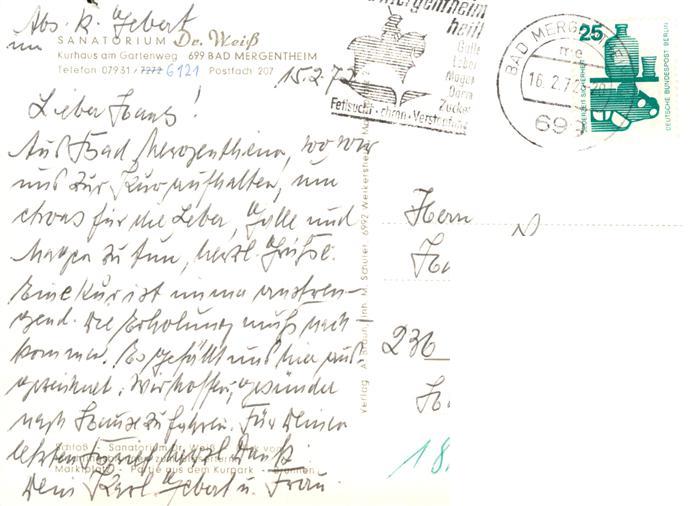 Abs. K. Gebert
im
SANATORIUM Dr. Weiß
Kurhaus am Gartenweg 699 BAD MERGENTHEIM
Telefon 07931 / 7272 6121 Postfach 207
15.2.72
Lieber Hans!
Aus Bad Mergentheim, wo wir
uns zur Kur aufhalten, um
etwas für die Leber, Galle und
Magen zu tun, herzl. Grüße.
Eine Kur ist immer anstren-
gend. Die Erholung muß nach
kommen. Es gefällt uns hier aus-
gezeichnet. Wir hoffen, gesünder
nach Hause zu fahren. Für Deinen
letzten Brief herzl. Dank.
Dein Karl Gebert u. Frau.
Schloß - Sanatorium Dr. Weiß
Marktplatz - Partie aus dem Kurpark - Brunnen
Verlag: Inh. M. Schurer, 6992
mergentheim
heilt
Galle
Leber
Magen
Darm
Zucker
Fettsucht - chron. Verstopfung
BAD MERGENTHEIM
16.2.72
699
25
JEDERZEIT SICHERHEIT
DEUTSCHE BUNDESPOST BERLIN
Herrn
236
18.